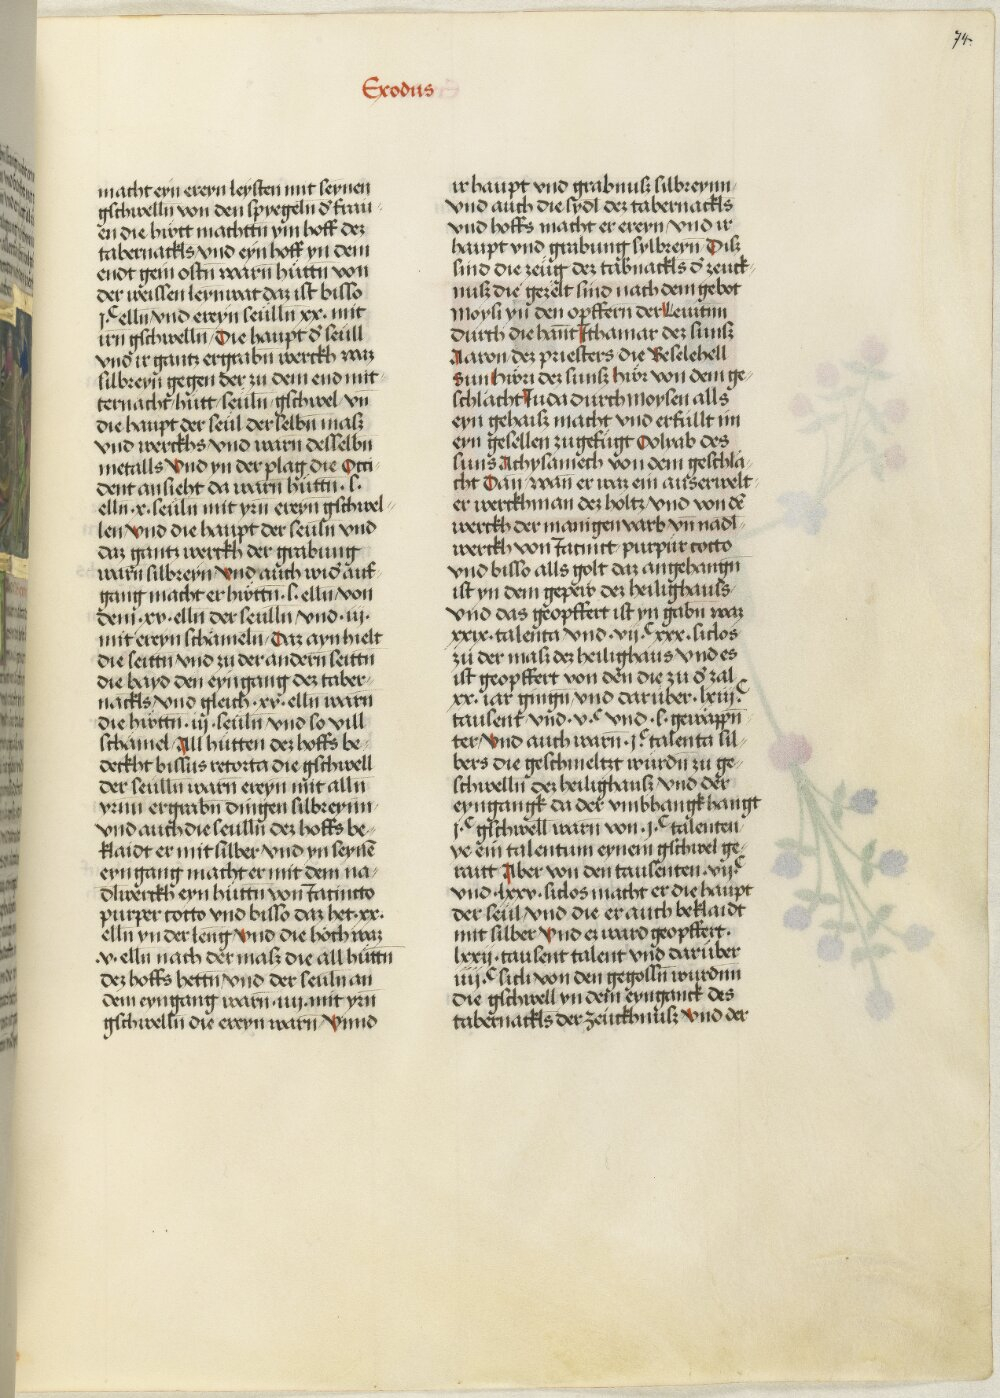 74.
Exodus
macht eyn ereyn leysten mit seynen
gschwelln von den spyegeln d frau-
en die hwtt machttn ym hoff dez
tabernackls vnd eyn hoff yn dem
endt gein ostn warn hüttn von
der weissen leynwat daz ist bisso
j.C elln vnd ereyn seülln xx. mit
irn gschwelln Die haupt d seüll
vnd ir gantz ergrabn werckh waz
silbreyn gegen der zu dem end mit-
ternacht hütt seüln gschwel vn
die haupt der seül der selbn masz
vnd werckhs vnd warn desselbn
metalls Vnd yn der plag die Occi-
dent ansieht da warn hüttn .l.
elln .x. seüln mit yrn ereyn gschwel-
len Vnd die haupt der seüln vnd
daz gantz werckh der grabung
warn silbreyn Vnd auch wid auf-
gang macht er hwttn .l. elln von
den .xv. elln der seülln vnd .iii.
mit ereyn schameln Daz ayn hielt
die seittn vnd zu der andern seittn
die bayd den eyngang dez taber-
nackls vnd gleich .xv. elln warn
die hwttn .iij. seüln vnd so vill
schamel All hütten dez hoffs be-
deckht bissus retorta die gschwell
der seülln warn ereyn mit alln
yrnn ergrabn dingen silbreynn
vnd auch die seülln dez hoffs be-
klaidt er mit silber vnd yn seynē
eyngang macht er mit dem na-
dlwerckh eyn hüttn von Iacincto
purper cocto vnd bisso daz het .xx.
elln yn der leng Vnd die höch waz
.v. elln nach der masz die all hüttn
dez hoffs hettn vnd der seüln an
dem eyngang warn .iiij. mit yrn
gschwelln die ereyn warn Vnnd
ir haupt vnd grabnusz silbreynn
vnd auch die sydl dez tabernackls
vnd hoffs macht er ereyn vnd ir
haupt vnd grabung sylbreyn Disz
sind die zeüg dez tabnackls d zeuck-
nusz die gezelt sind nach dem gebot
Moysi yn den opffern der Leuittn
durch die hannt Ithamar dez sunsz
Aaron dez priesters die Beselehell
Sun Hwri dez sunsz hwr von dem ge-
schlächt Iuda durch Moysen alls
eyn gehaisz macht vnd erfüllt im
eyn gesellen zugefügt Ooliab des
suns Achysamech von dem geschlä-
cht Dan wan er waz ein auserwelt-
er werckhman dez holtz vnd von dē
werckh der manigen varb vn nadl-
werckh von Iacinct purpur cocto
vnd bisso alls golt daz angehangn
ist yn dem gepew dez heilighauls
vnd das geopffert ist yn gabn waz
xxix. talenta vnd .vij.C xxx. siclos
zu der masz dez heilighaus vnd es
ist geopffert von den die zu d zal
xx. iar gingn vnd darüber .lxiij.C
tausent vnd .v.C vnd .l. gewappn-
ter Vnd auch warn .j.C talenta sil-
bers die geschmeltzt wurdn zu ge-
schwelln dez heilighausz vnd der
eyngangk da der vmbhangk hangt
j.C gschwell warn von .j.C talenten
ye ein talentum eynem gschwel ge-
raitt Aber von den tausenten .vij.C
vnd .lxxv. siclos macht er die haupt
der seül vnd die er auch beklaidt
mit silber Vnd ez ward geopffert.
lxxij. tausent talent vnd darüber
iiij.C sicli von den gegossn wurdnn
die gschwell yn dein eynganck des
tabernackls der zeückhnusz Vnd der